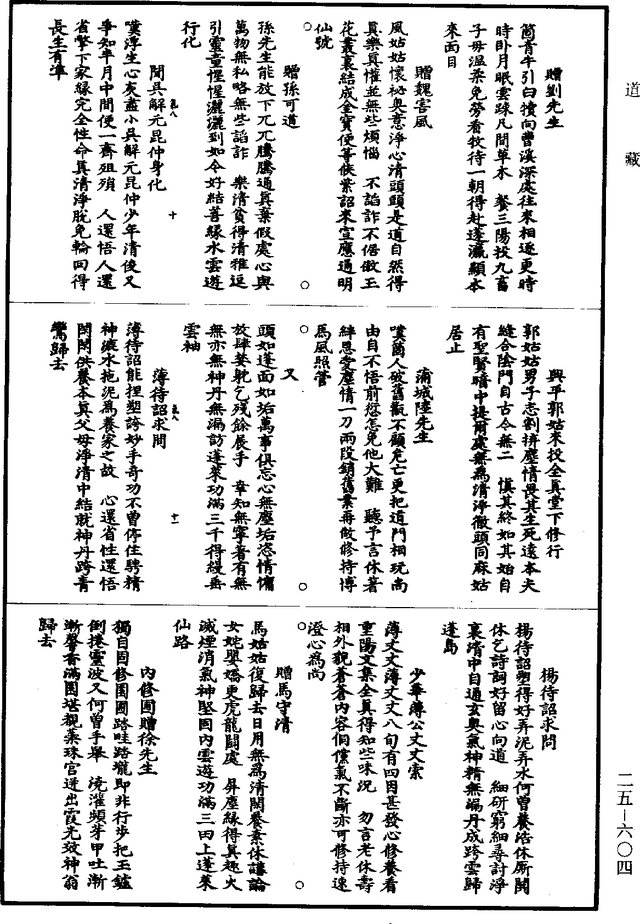 道藏
贈劉先生
簡青牛引白犢向曹溪深處往來相逐更時
時卧月眠雲踈凡間草木　餐三陽投九畜
子母温柔免勞看牧待一朝得赴蓬瀛顯本
來面目
贈魏害風
風姑姑懷祕奥意淨心清頭頭是道自然得
真樂真懽並無些煩惱　不諂詐不倨傲五
花叢裏結成金寶便等俟紫詔來宣應通明
仙號
贈孫可道
孫先生能放下兀兀騰騰通真棄假處心與
萬物無私略無些諂詐　樂清貧得清雅逗
引靈童惺惺灑灑到如今好結善緣水雲遊
行化
聞吳解元昆仲身化
嘆浮生心灰盡小吳解元昆仲少年清俊又
爭知半月中間便一齊殂殞　人還悟人還
省擎下家緣完全性命真清淨脫免輪回得
長生有準
十
興平郭姑來投全真堂下修行
郭姑姑男子志劉拚塵情畏其生死遠本夫
縫合陰門自古今無二　慎其終如其始自
有聖賢暗中提爾處無爲清淨徹頭同麻姑
居止
蒲城陸先生
嘆舊人破舊觀不顧危亡更把道門相玩尚
由自不悟前愆怎免他大難　聽予言休著
絆恩愛塵情一刀兩段銷舊業再做修持博
馬風照管
又
頭如蓬面如垢萬事俱忘心無塵垢恣情慵
放肆婪軃乞殘餘展手　幸知無寧著有無
無亦無神丹無漏訪蓬萊功滿三千得綬岳
雲袖
薄待詔求問
薄待詔能捏塑誇妙手奇功不曾停住騁精
神漉水拖泥爲養家之故　心還省性還悟
閑閑供養本真父母淨清中結就神丹跨青
鸞歸去
十一
楊待詔求問
楊待詔塑得好弄泥弄水何曾養浩休廝鬧
休乞詩詞好留心向道　細研窮細尋討淨
裏清中自通玄奧氣神精無漏丹成跨雲歸
蓬島
少華薄公丈丈索
薄丈丈薄丈丈八旬有四因甚發心修養看
重陽文集全真得知些味况　勿言老休壽
相外觀蒼蒼内容倜儻氣不斷亦可修持速
澄心爲尚
贈馬守清
馬姑姑復歸去日用無爲清閑養素休講論
女姹嬰嬌更虎龍鬭處　屏塵緣得真趣火
滅煙消氣神堅固内雲遊功滿三田上蓬萊
仙路
内修圓贈徐先生
獨自固修圓圓踏哇踏隴即非行步把玉鑪
倒捲靈波又何曾手舉　澆灌頻芽甲吐漸
漸馨香滿園堪覩藥珠宫迸出霞光效神翁
歸去
二五—六〇四